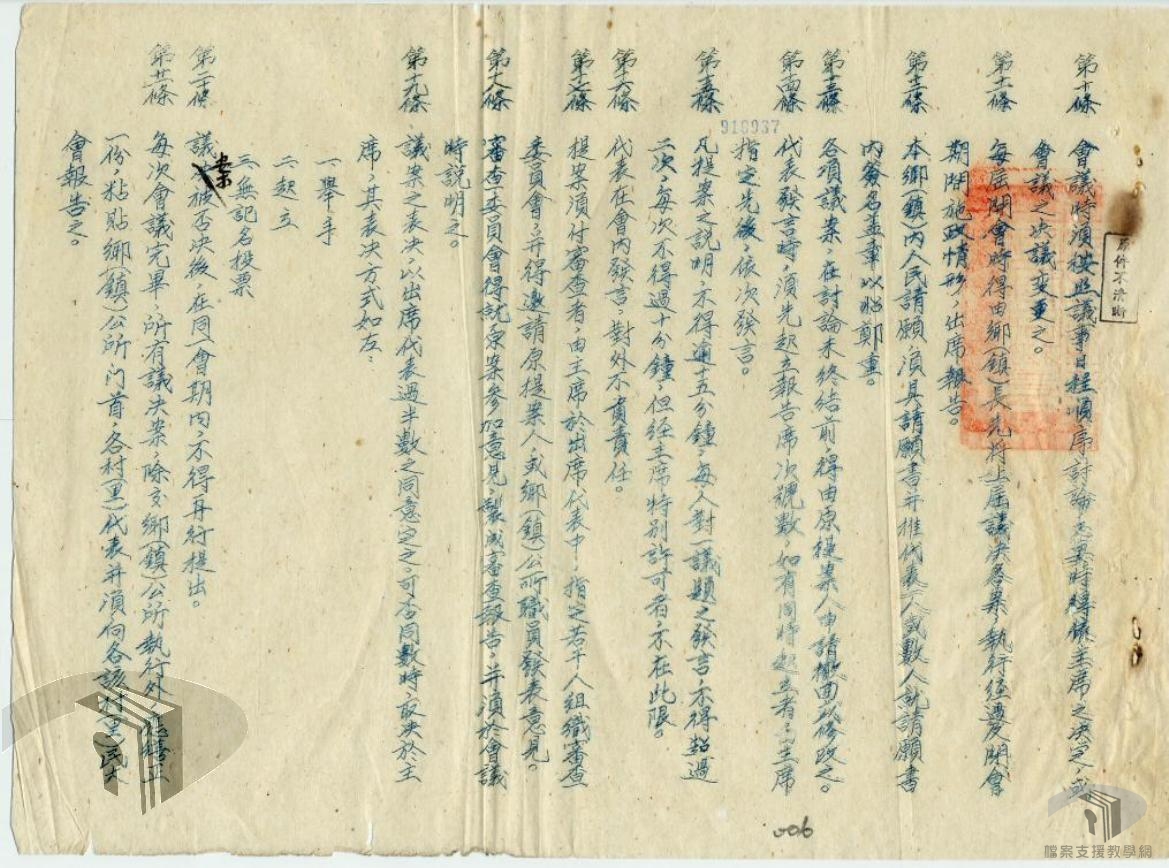 第十條　會議時須按照議事日程順序討論必要時得依主席之決定，或
會議之決議變更之。
第十一條　每屆開會時得由鄉（鎮）長先將上屆議決各案，執行經過及閉會
期間施政情形，出席報告。
第十二條　本鄉（鎮）內人民請願，須具請願書并推代表一人或數人就請願書
內簽名蓋章以昭鄭重。
第十三條　各項議案，在討論未終結前，得由原提案人申請撤回或修改之。
第十四條　代表發言時，須先起立報告席次號數，如有同時起立者，主席
指定先後，依次發言。
第十五條　凡提案之說明，不得逾十五分鐘，每人對一議題之發言，不得超過
二次，每次不得過十分鐘，但經主席特別許可者，不在此限。
第十六條　代表在會內發言，對外不負責任。
第十七條　提案須付審查者，由主席於出席代表中，指定若干人組織審查
委員會，并得邀請原提案人，或鄉（鎮）公所職員發表意見。
第十八條　審查委員會得就原案參加意見，製成審查報告，并須於會議
時說明之。
第十九條　議案之表決，以出席代表過半數之同意定之，可否同數時，取決於主
席，其表決方式如左：
一舉手
二起立
三無記名投票
第二十條　議案被否決後，在同一會期內不得再行提出。
第廿一條　每次會議完畢，所有議決案，除交鄉（鎮）公所執行外，應繕正
一份，粘貼鄉（鎮）公所門首，各村（里）代表并須向各該村（里）民大
會報告之。
918937
原件不清晰
006
檔案支援教學網